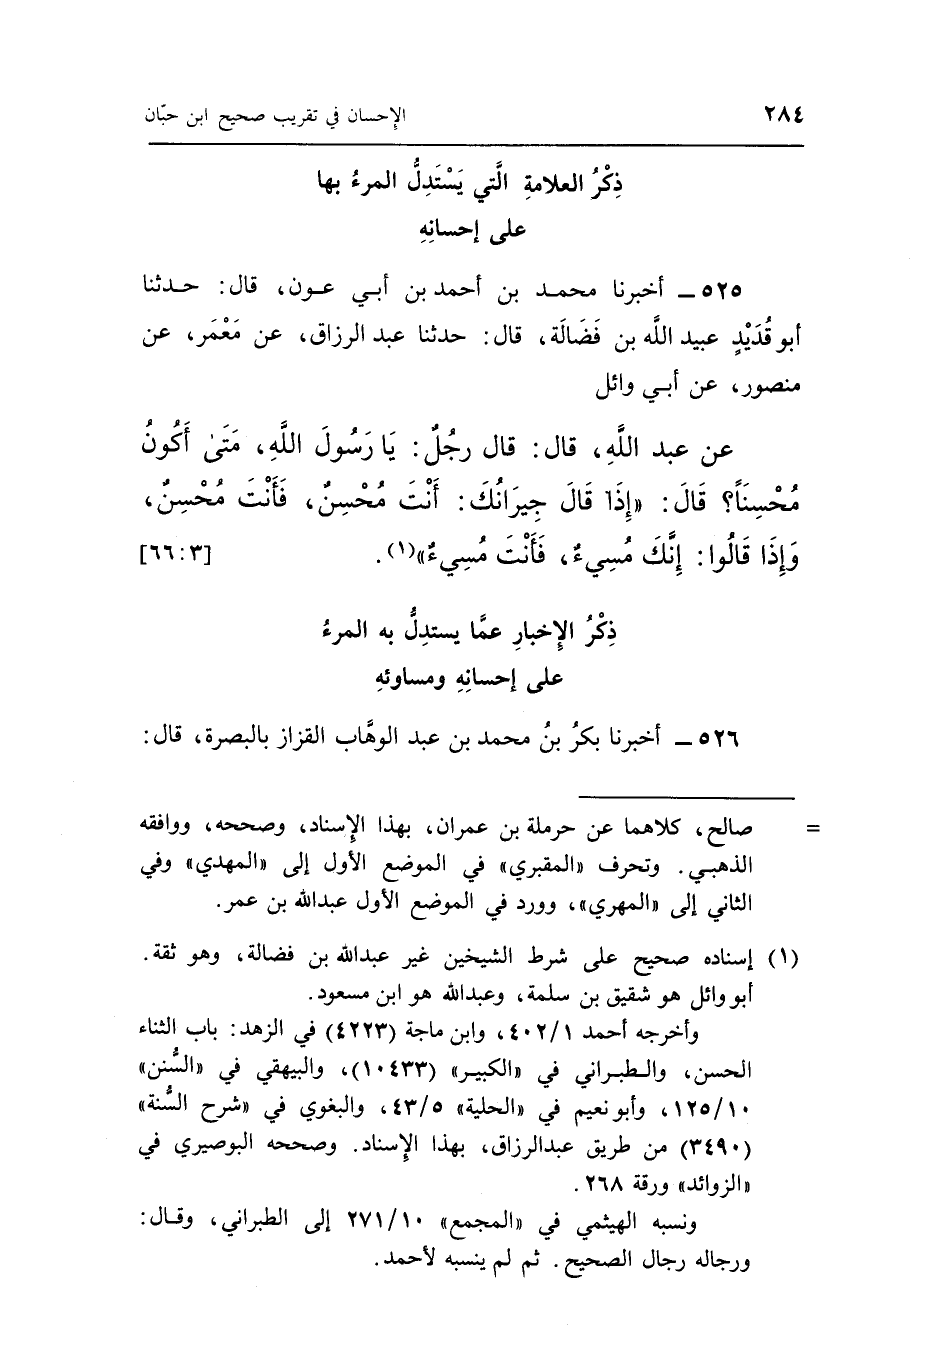 ٢٨٤ الإحسان في تقريب صحيح ابن حبّان
ذِكْرُ العلامةِ الَّتي يَسْتَدِلُّ المرءُ بها
على إحسانِهِ
٥٢٥ ـ أخبرنا محمـد بن أحمد بن أبـي عـون، قال: حـدثنا
أبو قُدَيْدٍ عبيد اللَّه بن فَضَالَة، قال: حدثنا عبد الرزاق، عن مَعْمَر، عن
منصور، عن أبـي وائل
عن عبد اللَّهِ، قال: قال رجُلٌ: يَا رَسُولَ اللَّهِ، مَتَىٰ أَكُونُ
مُحْسِنَاً؟ قَالَ: «إِذَا قَالَ جِيرَانُكَ: أَنْتَ مُحْسِنٌ، فَأَنْتَ مُحْسِنٌ،
وَإِذَا قَالُوا: إِنَّكَ مُسِيءٌ، فَأَنْتَ مُسِيءٌ»(١). [٣: ٦٦]
ذِكْرُ الإِخبارِ عمَّا يستدِلُّ به المرءُ
على إحسانِهِ ومساوئهِ
٥٢٦ ـ أخبرنا بكرُ بنُ محمد بن عبد الوهَّاب القزاز بالبصرة، قال:
= صالح، كلاهما عن حرملة بن عمران، بهذا الإسناد، وصححه، ووافقه
الذهبـي. وتحرف «المقبري» في الموضع الأول إلى «المهدي» وفي
الثاني إلى «المهري»، وورد في الموضع الأول عبدالله بن عمر.
(١) إسناده صحيح على شرط الشيخين غير عبدالله بن فضالة، وهو ثقة.
أبو وائل هو شقيق بن سلمة، وعبدالله هو ابن مسعود.
وأخرجه أحمد ٤٠٢/١، وابن ماجة (٤٢٢٣) في الزهد: باب الثناء
الحسن، والـطبـراني في «الكبيـر» (١٠٤٣٣)، والبيهقي في «السُّنن»
١٢٥/١٠، وأبو نعيم في «الحلية» ٤٣/٥، والبغوي في «شرح السُّنة»
(٣٤٩٠) من طريق عبدالرزاق، بهذا الإِسناد. وصححه البوصيري في
«الزوائد» ورقة ٢٦٨.
ونسبه الهيثمي في «المجمع» ٢٧١/١٠ إلى الطبراني، وقـال:
ورجاله رجال الصحيح. ثم لم ينسبه لأحمد.